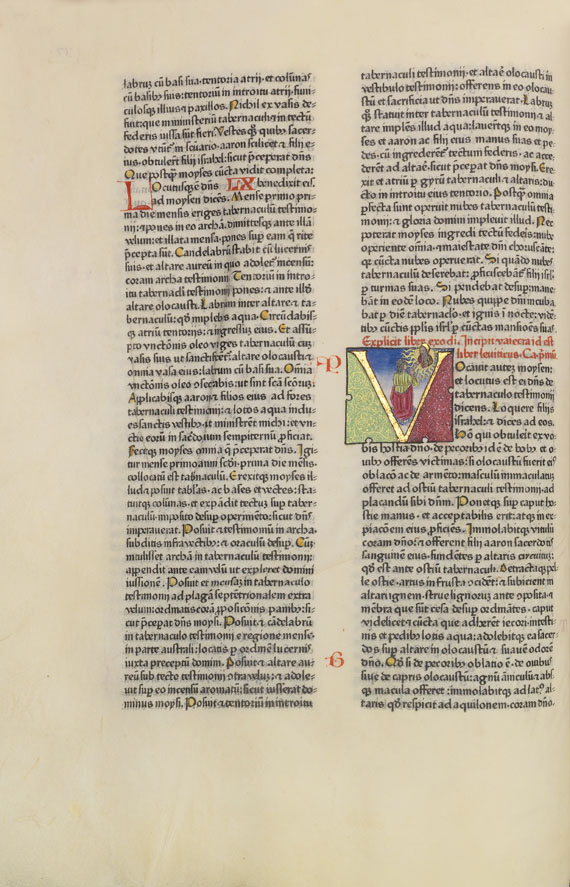 labruz cū basi sua·tentoria atrij·et colūnas
cū basibȝ suis:tentoriū in introitu atrij·funi⸗
culosqȝ illius ⁊ paxillos. Nichil ex vasis de⸗
fuit:que ministeriū tabernaculi ⁊ in tectū
federis iussa sūt fieri·Vestes qȝ quibȝ sacer⸗
dotes vtūt᷑ in scūario·aaron scilicet ⁊ filij e⸗
ius·obtulerūt filij israhel: sicut p̄ceperat dn̄s
Que postqȝ moyses cūcta vidit completa:
benedixit eis.
LX
Locutusqȝ ē dn̄s
ad moysen dicēs. Mense primo pri⸗
ma die mensis eriges tabernaculū testimo⸗
nij:⁊ pones in eo archā·dimittesqȝ ante illā
velum:et illata mensa·pones sup eam q̄ rite
p̄cepta sūt. Candelabrū stabit cū lucernis
suis·et altare aureū in quo adolet᷑ incensū:
coram archa testimonij Tentoriū in introi⸗
itu tabernacli testimonij pones:⁊ ante illud
altare olocausti. Labrum inter altare ⁊ ta⸗
bernaculū:qd̄ implebis aqua. Circūdabis⸗
qȝ atriū tentorijs:⁊ ingressus eius. Et assū⸗
pto vnctōnis oleo vnges tabernaculū cuȝ
vasis suis ut sanctificent᷑:altare olocausti ⁊
omnia vasa eius:labrum cū basi sua. Omnia
vnctionis oleo ꝯsecrabis:ut sint scā scōruȝ.
Applicabisqȝ aaron ⁊ filios eius ad fores
tabernaculi testimonij:⁊ lotos aqua indu⸗
es sanctis vestibȝ:ut ministrent michi:et vn⸗
ctio eorū in sac̄dotium sempiternū ꝓficiat.
Fecitqȝ moyses omnia q̄ p̄ceperat dn̄s. Igi⸗
tur mense primo anni scd̄i·prima die mēsis·
collocatū est tab̄naculū. Erexitqȝ moyses il⸗
lud:⁊ posuit tablas·ac bases et vectes:sta⸗
tuitqȝ colūnas·et expādit tectuȝ sup taber⸗
naculū·imposito desup operimēto:sicut dn̄s
imperauerat. Posuit ⁊ testimoniū in archa·
subditis infra vectibȝ:⁊ oraculū desup. Cuȝ⸗
qȝ intulisset archā in tabernaculū testimonij:
appendit ante eam velū ut expleret domini
iussionē. Posuit et mensaȝ in tabernaculo
testimonij ad plagā septētrionalem extra
velum:ordinatis corā ꝓpositōnis panibȝ:si⸗
cut p̄cepat dn̄s moysi. Posuit ⁊ cādelabrū
in tabernaculo testimonij e regione mense·
in parte australi:locatis ꝑ ordinē lucernis
iuxta preceptū domini. Posuit ⁊ altare au⸗
reū sub tecto testimonij ꝯtra veluȝ:⁊ adole⸗
uit sup eo incensū aromatū:sicut iusserat do⸗
minus moysi. Posuit ⁊ tentoriū in introitu
tabernaculi testimonij·et altaē olocausti in
vestibulo testimonij:offerens in eo olocau⸗
stū et sacrificia ut dn̄s imperauerat. Labruȝ
qȝ statuit inter tabernaculū testimonij ⁊ al⸗
tare implēs illud aqua:lauerūtqȝ in eo moy⸗
ses et aaron ac filij eius manus suas et pe⸗
des·cū ingrederent᷑ tectum federis·ac acce⸗
derēt ad altaē·sicut p̄cepat dn̄s moysi. Ere⸗
xit et atriū ꝑ gyrū tabernaculi ⁊ altaris:du⸗
cto in introitu eius tentorio. Postqȝ omnia
ꝑfecta sunt operuit nubes tabernaculū testi⸗
monij:⁊ gloria domini impleuit illud. Nec
poterat moyses ingredi tectū federis:nube
operiente omnia·⁊ maiestate dn̄i choruscāte:
qȝ cūcta nubes operuerat. Si quādo nubes
tabernaculū deserebat: ꝓficiscebāt᷑ filij isrl̄
ꝑ turmas suas. Si pendebat desup:mane⸗
bāt in eodē loco. Nubes quippe dn̄i incuba⸗
bat ꝑ diē tabernaclo·et ignis ī nocte:vidē⸗
tibȝ cūctis pplis isrl̄ ꝑ cūctas mansiōes suas.
Explicit liber exodi. Incipit vaiecra id est
liber leuiticus. Ca·pmū
P
Vocauit autez moysen:
et locutus est ei dn̄s de
tabernaculo testimonij
dicens. Loquere filijs
israhel:⁊ dices ad eos.
Hō qui obtulerit ex vo⸗
bis hostiā dn̄o·de pecoribȝ id ē de bobȝ et o⸗
uibȝ offerēs victimas:si olocaustū fuerit ei⸗
oblacō ac de armēto:masculū immaculatū
offeret ad ostiū tabernaculi testimonij·ad
placandū sibi dn̄m. Ponetqȝ sup caput ho⸗
stie manus·et acceptabilis erit:atqȝ in ex⸗
piacōem eius ꝓficiēs. Immolabitqȝ vitulū
coram dn̄o:⁊ offerent filij aaron sacerdotes
sanguinē eius·fundētes ꝑ altaris circuituȝ:
qd̄ est ante ostiū tabernaculi. Detractaqȝ pel⸗
le hostie·artus in frusta ꝯcidēt:⁊ subicient in
altari ignem·strue lignoruȝ ante ꝯposita·⁊
mēbra que sūt cesa desup ordinātes·caput
videlicet ⁊ cūcta que adherēt iecori·intesti⸗
nis et pedibȝ lotis aqua:adolebitqȝ ea sacer⸗
dos sup altare in olocaustū·⁊ suauē odorē
B
dn̄o. Qd̄ si de pecoribȝ oblatio ē·de ouibus
siue de capris olocaustū:agnū āniculū ⁊ abs⸗
qȝ macula offeret:immolabitqȝ ad lat᷑ al⸗
taris qd̄ respicit ad aquilonem·coram dn̄o.